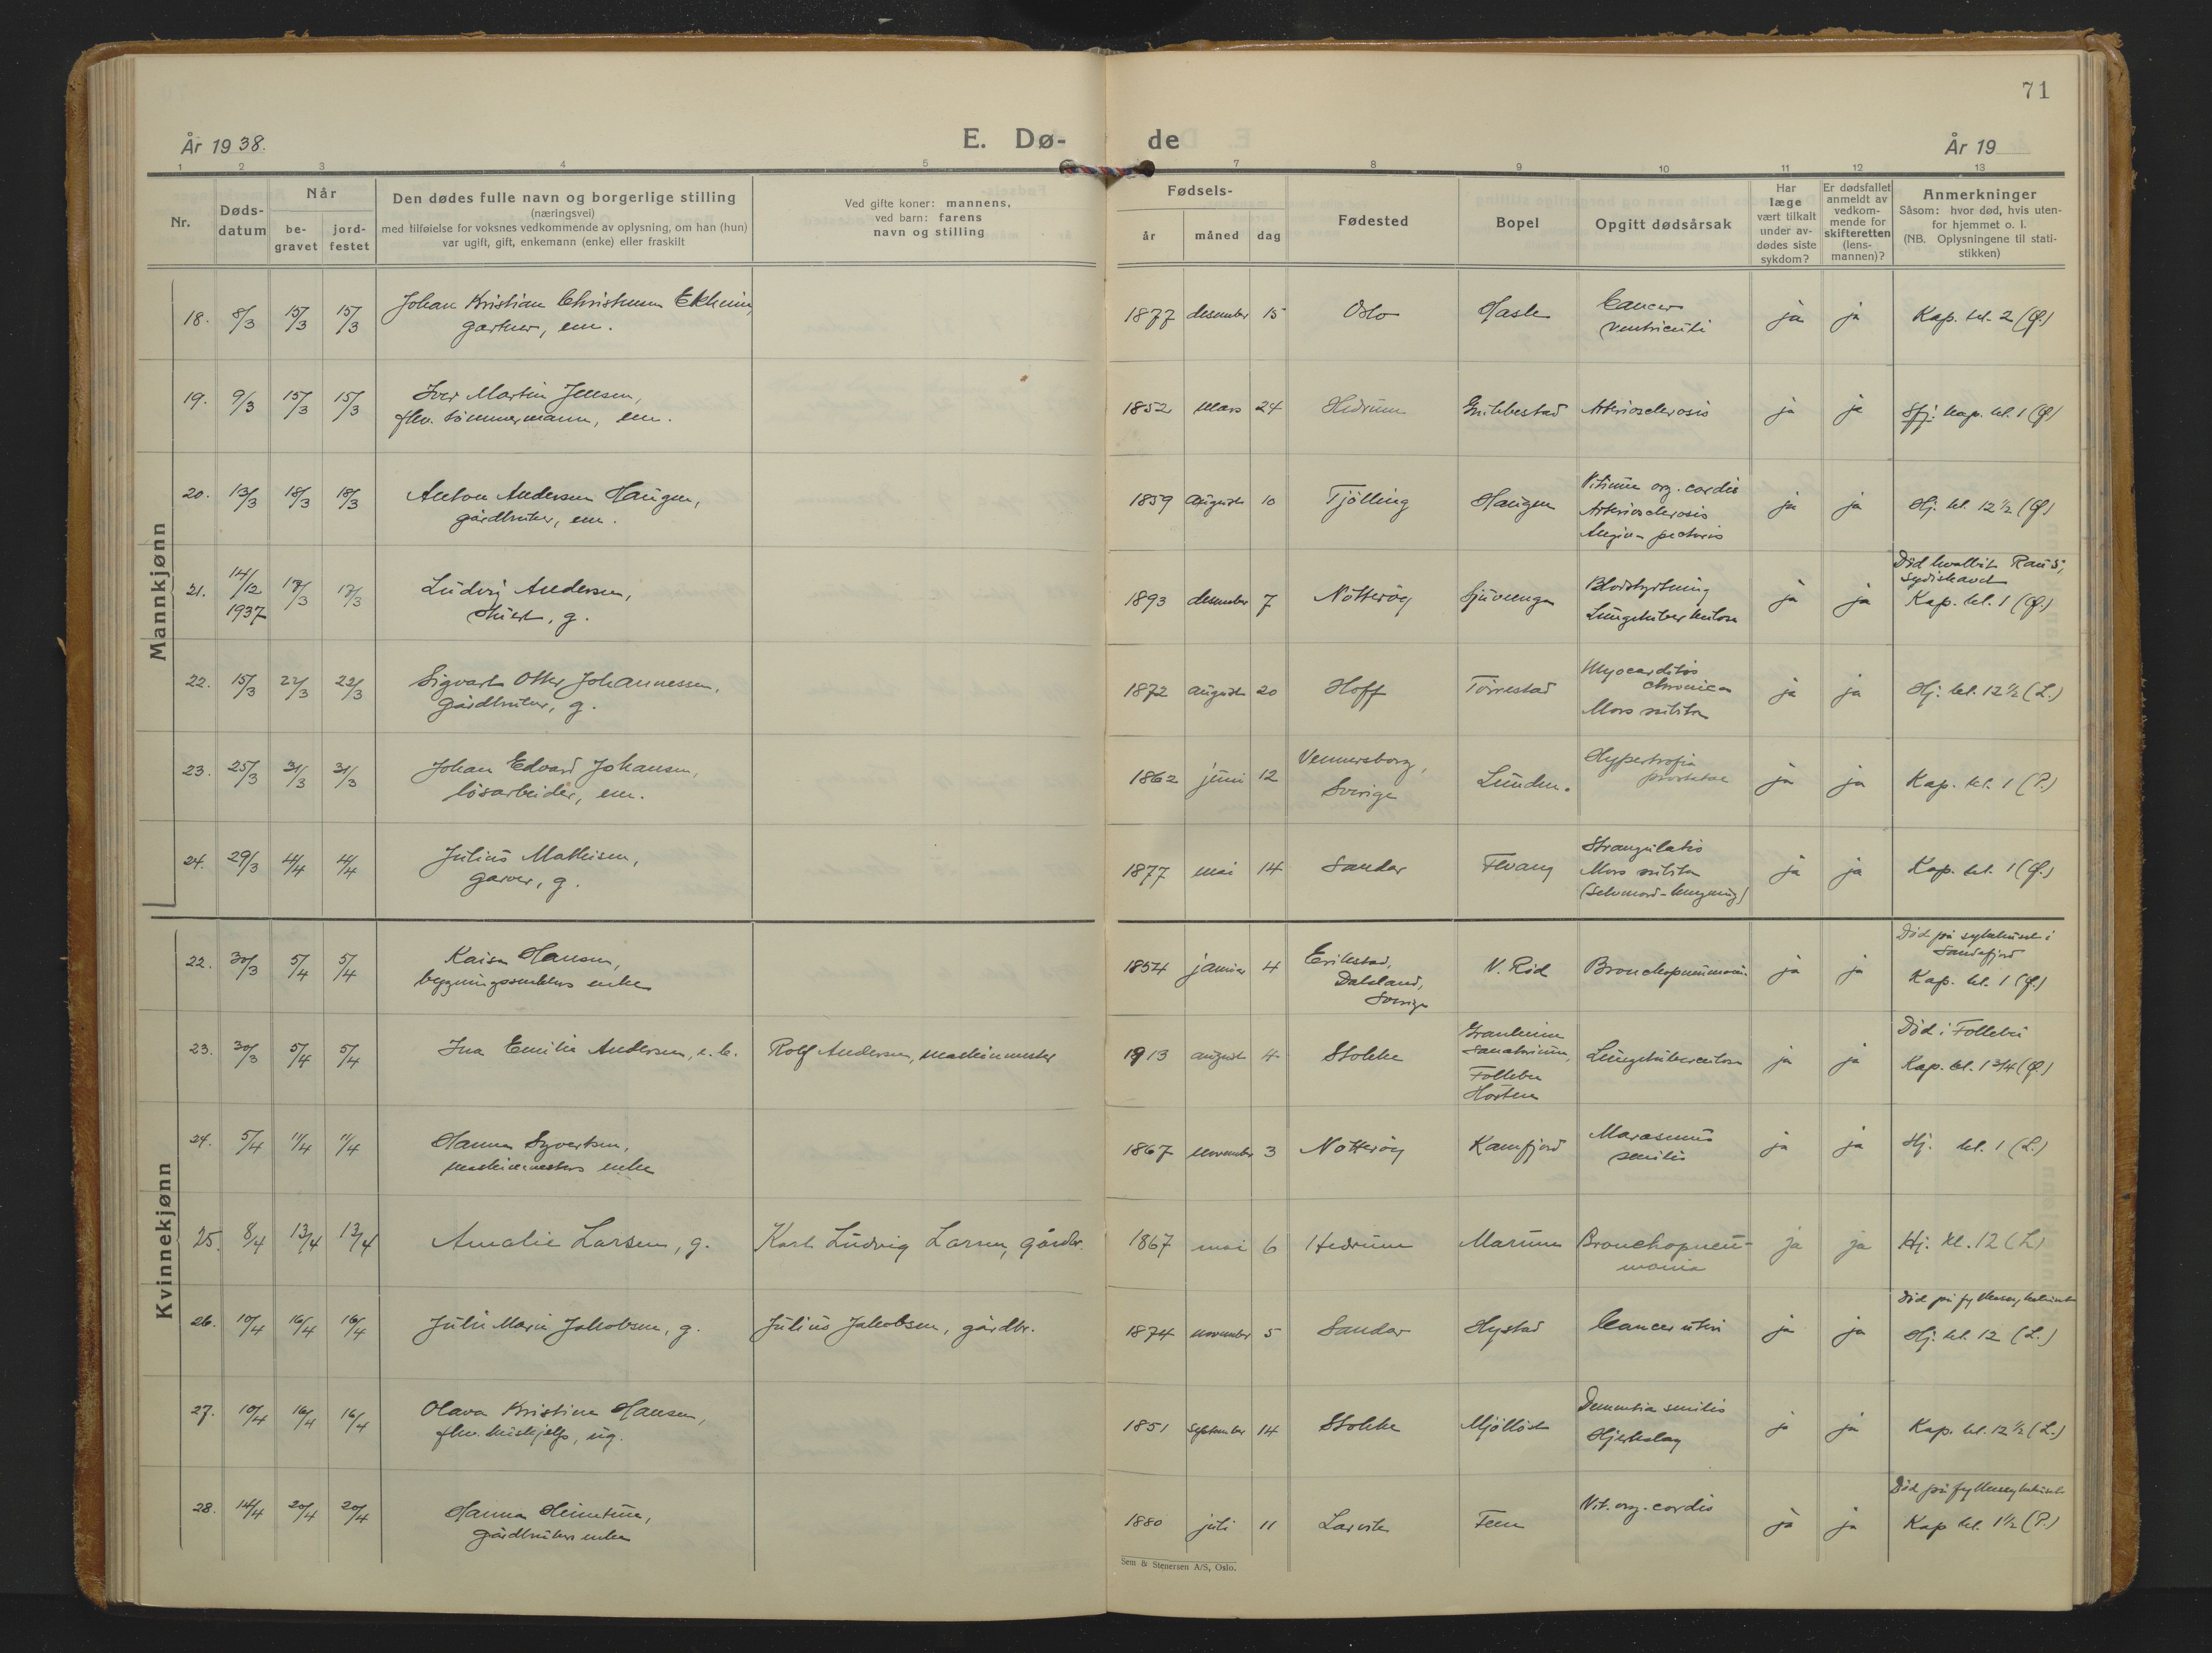 71
År 1938.
E. Dø-
de
År 19
1 2 3 4 5 7 8 9 10 11 12 13
Nr.
Døds-
datum
Når
be-
gravet
jord-
festet
Den dødes fulle navn og borgerlige stilling
(næringsvei)
med tilføielse for voksnes vedkommende av oplysning, om han (hun)
var ugift, gift, enkemann (enke) eller fraskilt
Ved gifte koner: mannens,
ved barn: farens
navn og stilling
Fødsels-
år måned dag
Fødested
Bopel
Opgitt dødsårsak
Har
læge
vært tilkalt
under av-
dødes siste
sykdom?
Er dødsfallet
anmeldt av
vedkom-
mende for
skifteretten
(lens-
mannen)?
Anmerkninger
Såsom: hvor død, hvis uten-
for hjemmet o. l.
(NB. Oplysningene til stati-
stikken)
Mannkjønn
18. 8/3 15/3 15/3 Johan Kristian Christensen Ekheim,
gartner, em.
1877 desember 15 Oslo Hasle Cancer
ventriculi
ja ja Kap. kl. 2 (Ø.)
19. 9/3 15/3 15/3 Iver Martin Jensen,
fhv. tømmermann, em.
1852 mars 24 Hedrum Gribbestad Arteriosclerosis ja ja Sfj. kap. kl. 1 (Ø)
20. 13/3 18/3 18/3 Anton Andersen Haugen,
gårdbruker, em.
1859 august 10 Tjölling Haugen Vitium org. cordis
Arteriosclerosis
Angina pectoris
ja ja Hj. kl. 12 1/2 (Ø)
21. 14/12 1937 17/3 17/3 Ludvig Andersen,
g.
1893 desember 7 Nötteröy Blodstyrtning
Lungetuberkulose
ja ja
Kap. kl. 1 (Ø.)
22. 15/3 22/3 22/3 Sigvart Otter Johannessen,
gårdbruker, g.
1872 august 20 Hoff Torrestad Myocarditis
chronica
Mors subita
ja ja Hj. kl. 12 1/2 (L.)
23. 25/3 31/3 31/3 Johan Edvard Johansen,
løsarbeider, em.
1862 juni 12 Vennersborg,
Sverige
Lunden. Hypertrofia
prostatae
ja ja Kap. kl. 1 (P.)
24. 29/3 4/4 4/4 Julius Mathisen,
garver, g.
1877 mai 14 Sandar Fevang Strangulatio
Mors subita
(selvmord-hengning)
ja ja Kap. kl. 1 (Ø.)
Kvinnekjønn
22. 30/3 5/4 5/4 Kaisa Hansen,
bygningssnekkers enke
1854 januar 4 Erikstad,
Dalsland,
Sverige
V. Rød Bronchopneumonia ja ja Död på sykehuset i
Sandefjord
Kap. kl. 1 (Ø)
23. 30/3 5/4 5/4 Ina Emilie Andersen,
Rolf Andersen, maskinmester
1913 august 4 Stokke Granheim
sanatorium,
Follebu
Horten
Lungetuberculose ja ja Död i Follebu
Kap. kl. 1 3/4 (Ø)
24. 5/4 11/4 11/4 Hanna Syvertsen,
maskinmesters enke
1867 november 3 Nötteröy Kamfjord Marasmus
senilis
ja ja Hj. kl. 1 (L.)
25. 8/4 13/4 13/4 Amalie Larsen, g.
Karl Ludvig Larsen, gårdbr.
1867 mai 6 Hedrum Marum Bronchopneu-
monia
ja ja Hj. kl. 12 (L)
26. 10/4 16/4 16/4 Julie Marie Jakobsen, g.
Julius Jakobsen, gårdbr.
1874 november 5 Sandar Hystad Cancer uteri ja ja Död på fylkessykehuset
Hj. kl. 12 (L.)
27. 10/4 16/4 16/4 Olava Kristine Hansen,
fhv. hushjelp, ug.
1851 september 14 Stokke Mjölløst Dementia senilis
Hjerteslag
ja ja Kap. kl. 12 1/2 (L.)
28. 14/4 20/4 20/4 Hanna Heimtun,
gårdbrukers enke
1880 juli 11 Larvik Fevn Vit. org. cordis
ja ja Död på fylkessykehuset
Kap kl. 1 1/2 (P.)
Sem & Stenersen A/S, Oslo.